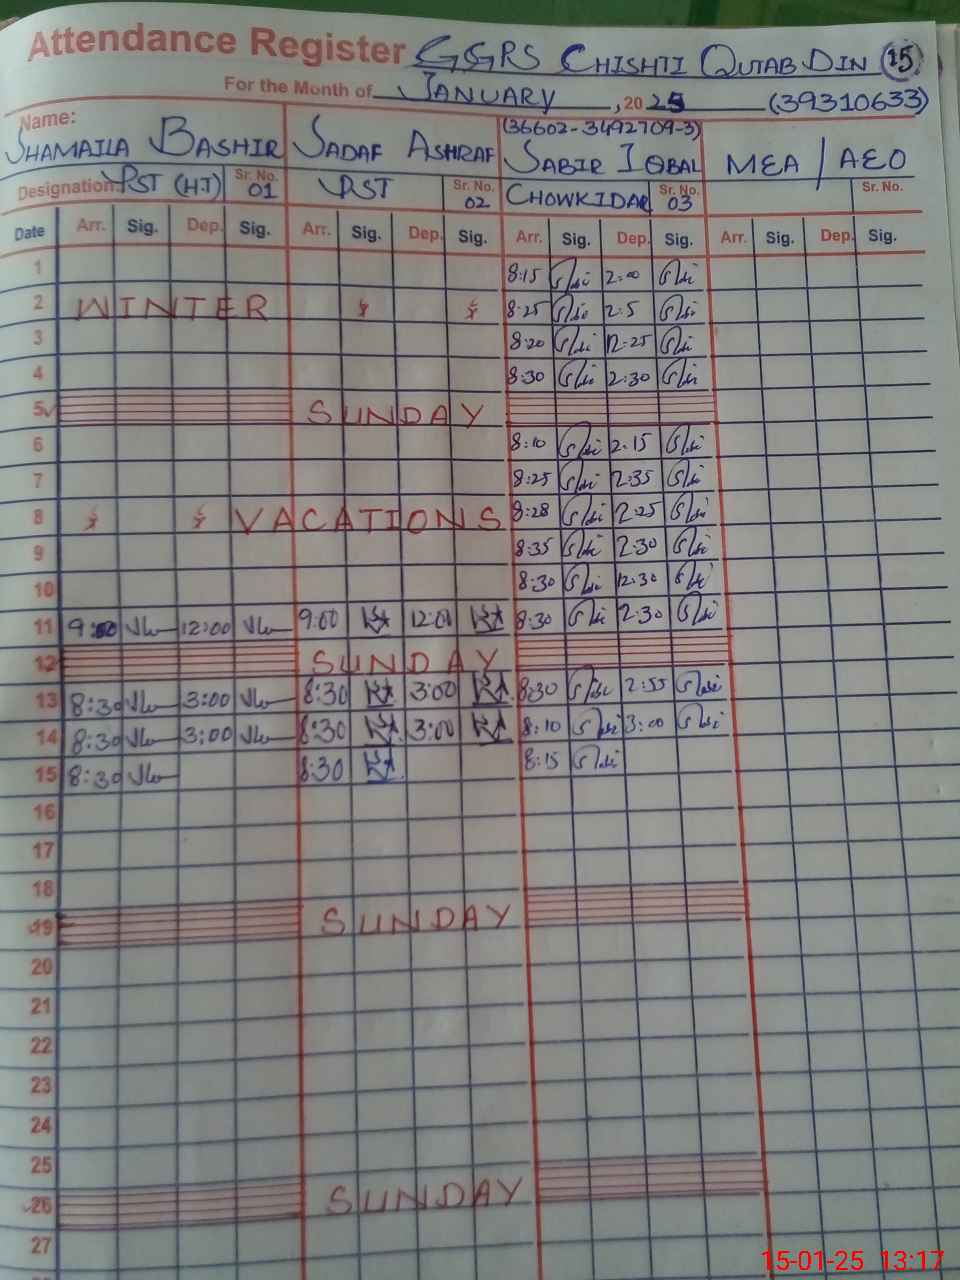 Attendance Register GGPS CHISHTI QUTAB DIN 15
For the Month of JANUARY , 2025 (39310633)
Name: SHAMAILA BASHIR SADAF ASHRAF (36602-3492709-3) SABIR IQBAL MEA / AEO
Designation PST (HT) Sr. No. 01 PST Sr. No. 02 CHOWKIDAR Sr. No. 03 Sr. No.
Date Arr. Sig. Dep. Sig. Arr. Sig. Dep. Sig. Arr. Sig. Dep. Sig. Arr. Sig. Dep. Sig.
1 8:15 2:00
2 WINTER 8:25 2:5
3 8:20 12:25
4 8:30 2:30
5 SUNDAY
6 8:10 2:15
7 8:25 2:35
8 VACATIONS 8:28 2:25
9 8:35 2:30
10 8:30 12:30
11 9:00 12:00 9:00 12:00 8:30 2:30
12 SUNDAY
13 8:30 3:00 8:30 3:00 8:30 2:55
14 8:30 3:00 8:30 3:00 8:10 3:00
15 8:30 8:30 8:15
16
17
18
19 SUNDAY
20
21
22
23
24
25
26 SUNDAY
27
15-01-25 13:17